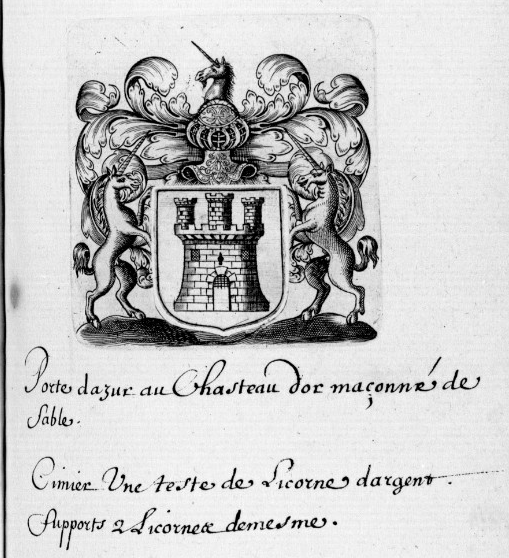 Porte dazur au Chasteau dor maçonné de
sable.
Cimier Vne teste de Licorne dargent.
Supports 2 Licornes demesme.